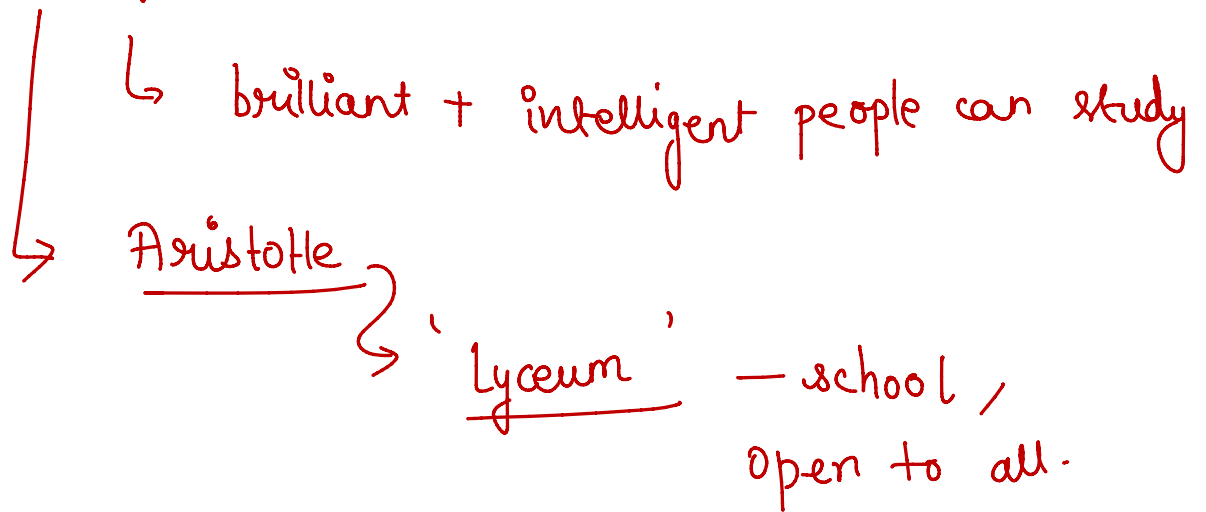 ↳ brilliant + intelligent people can study
↳ Aristotle
'Lyceum' — school,
open to all.